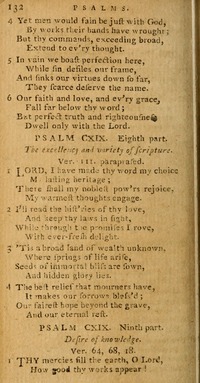 132 PSALMS.
4 Yet men would fain be juſt with God,
By works their hands have wrought;
But thy commands, exceeding broad,
Extend to ev'ry thought.
5 In vain we boaſt perfection here,
While ſin defiles our frame,
And ſinks our virtues down ſo far,
They ſcarce deſerve the name.
6 Our faith and love, and ev'ry grace,
Fall far below thy word;
But perfect truth and righteouſneſs
Dwell only with the Lord.
PSALM CXIX. Eighth part.
The excellency and variety of ſcripture.
Ver. 111. paraphraſed.
1 LORD, I have made thy word my choice
My laſting heritage;
There ſhall my nobleſt pow'rs rejoice,
My warmeſt thoughts engage.
2 I'll read the hiſt'ries of thy love,
And keep thy laws in ſight,
While through the promiſes I rove,
With ever-freſh delight.
3 'Tis a broad land of wealth unknown,
Where ſprings of life ariſe,
Seeds of immortal bliſs are ſown,
And hidden glory lies.
4 The beſt relief that mourners have,
It makes our ſorrows bleſs'd;
Our faireſt hope beyond the grave,
And our eternal reſt.
PSALM CXIX. Ninth part.
Deſire of knowledge.
Ver. 64, 68, 18.
1 THY mercies fill the earth, O Lord,
How good thy works appear!